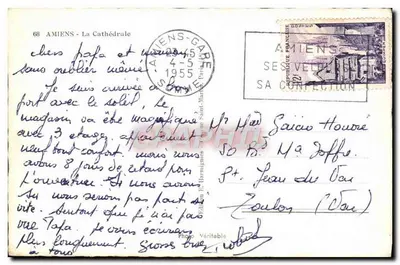 68 AMIENS - La Cathédrale
chers papa et mamo
sans oublier mémé.
Je suis arrivée à bon
port avec le soleil, le
magasin va être magnifique
avec 3 étages, appartement
neuf tout confort, mais nous
avons 8 jours de retard pour
l'ouverture. Je nous avons
su nous serions pas parti si
vite. Surtout que j'ai pas
vue Papa. Je vous écrirai
plus longuement. Grosses bises
à tous
AMIENS-GARE
20-45
4-5
1955
SOMME
AMIENS
SES VELOURS
SA CONFECTION
POSTES
FRANCE
12F
Mr Mme Honoré
50 Bd Mal Joffre
St Jean du Var
Toulon (Var)
Photo Véritable